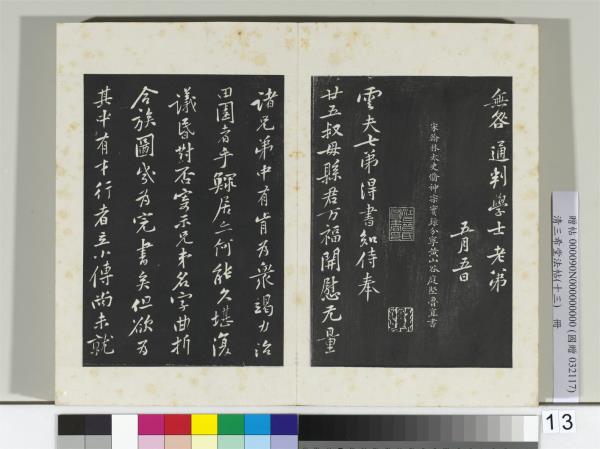 無咎通判學士老弟
五月五日
宋翰林太史脩神宗實錄分寧黃山谷庭堅魯直書
雲夫七弟得書知侍奉
廿五叔母縣君万福開慰无量
諸兄弟中有肯為衆竭力治
田園者乎鰥居亦何能久堪復
議昏對否寄示兄弟名字曲折
合族圖幾為完書矣但欲為
其中有十行者立小傳尚未就
贈帖 000090N000000000 (國贈 032117)
清三希堂法帖(十三) 冊
13